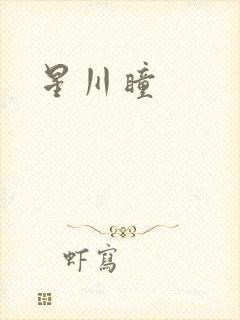 星川瞳
虾寫